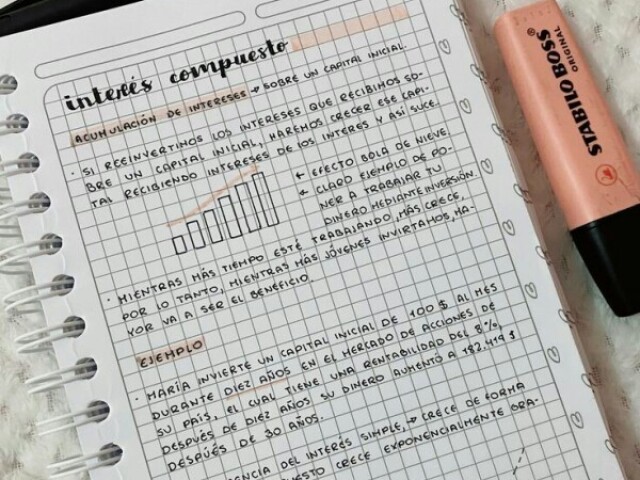 interés compuesto
ACUMULACIÓN DE INTERESES → SOBRE UN CAPITAL INICIAL.
· SI REEINVERTIMOS LOS INTERESES QUE RECIBIMOS SO-
BRE UN CAPITAL INICIAL, HAREMOS CRECER ESE CAPI-
TAL RECIBIENDO INTERESES DE LOS INTERÉS Y ASÍ SUCE.
← EFECTO BOLA DE NIEVE
← CLARO EJEMPLO DE PO-
NER A TRABAJAR TU
DINERO MEDIANTE INVERSIÓN.
· MIENTRAS MÁS TIEMPO ESTÉ TRABAJANDO, MÁS CRECE,
POR LO TANTO, MIENTRAS MÁS JÓVENES INVIRTAMOS, MA-
YOR VA A SER EL BENEFICIO.
EJEMPLO
· MARÍA INVIERTE UN CAPITAL INICIAL DE 100 $ AL MES
DURANTE DIEZ AÑOS EN EL MERCADO DE ACCIONES DE
SU PAÍS, EL CUAL TIENE UNA RENTABILIDAD DEL 8%,
DESPUÉS DE DIEZ AÑOS SU DINERO AUMENTÓ A 182.414 $
DESPUÉS DE 30 AÑOS.
DEL INTERÉS SIMPLE, → CRECE DE FORMA
CRECE EXPONENCIALMENTE GRA-
STABILO BOSS®
ORIGINAL